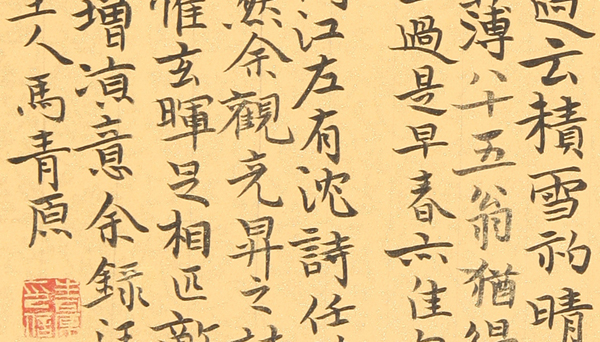 過云積雪初晴
薄八十五翁猶得
過是早春亦佳
江左有沈詩任
然余觀彥昇之詩
惟玄暉足相匹敵
增演意余錄
主人馬青原